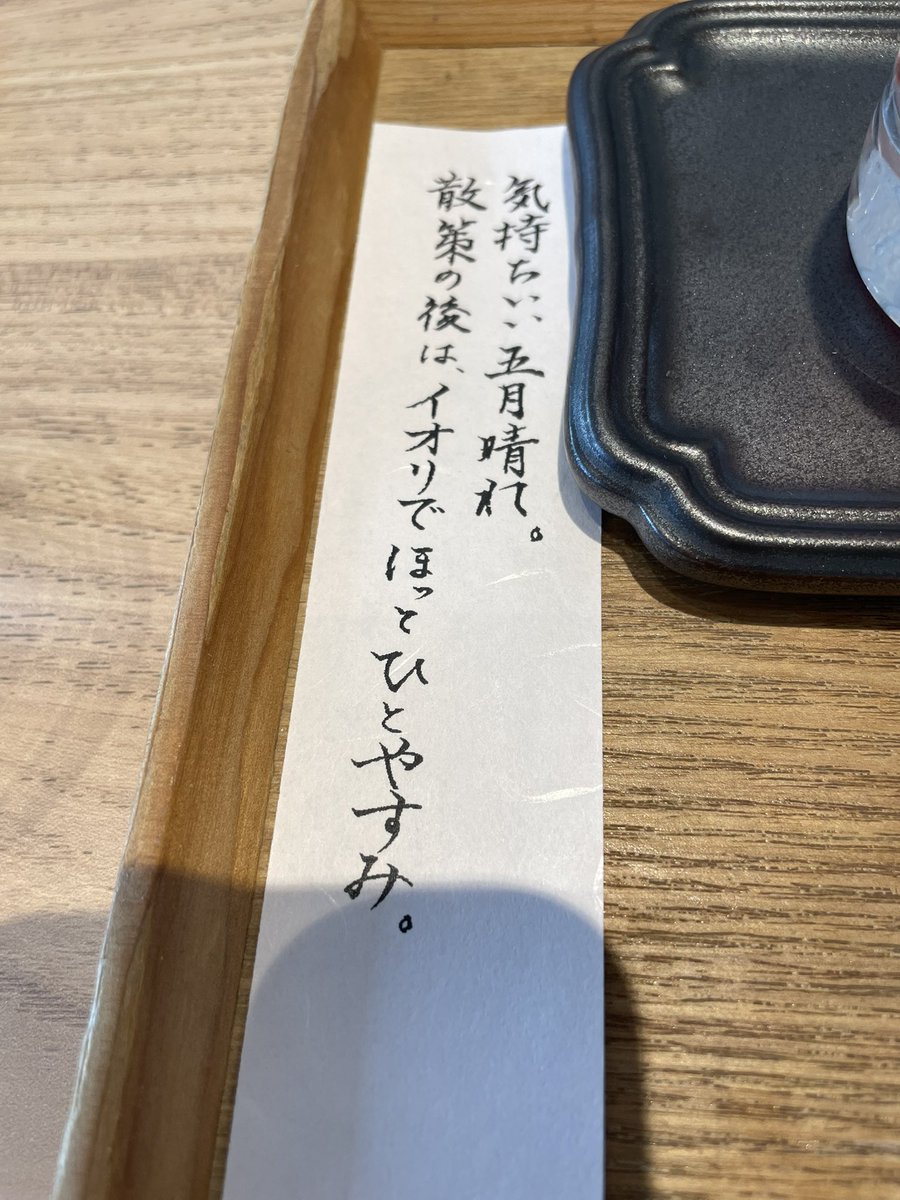 気持ちいい五月晴れ。
散策の後は、イオリでほっとひとやすみ。